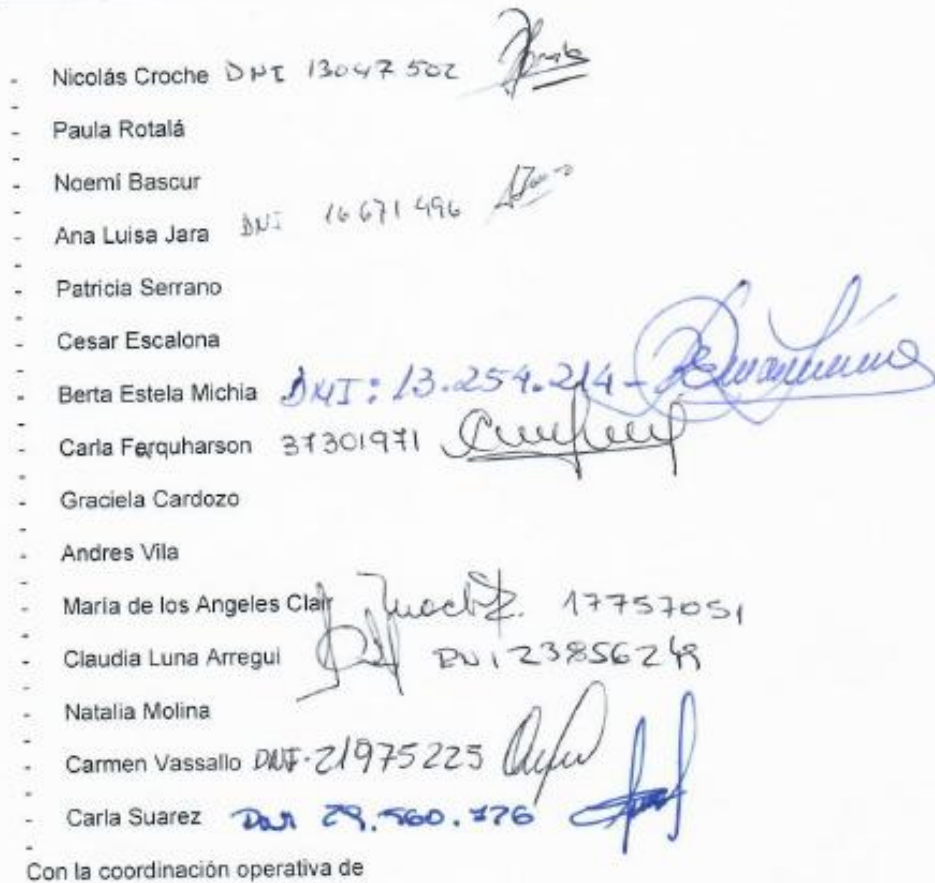 - Nicolás Croche DNI 13047502
- Paula Rotalá
- Noemí Bascur
- Ana Luisa Jara DNI 16671496
- Patricia Serrano
- Cesar Escalona
- Berta Estela Michia DNI: 13.254.214-
- Carla Farquharson 37301971
- Graciela Cardozo
- Andres Vila
- Maria de los Angeles Clair 17757051
- Claudia Luna Arregui DNI 23856249
- Natalia Molina
- Carmen Vassallo DNI. 21975225
- Carla Suarez DNI 29.560.776
Con la coordinación operativa de